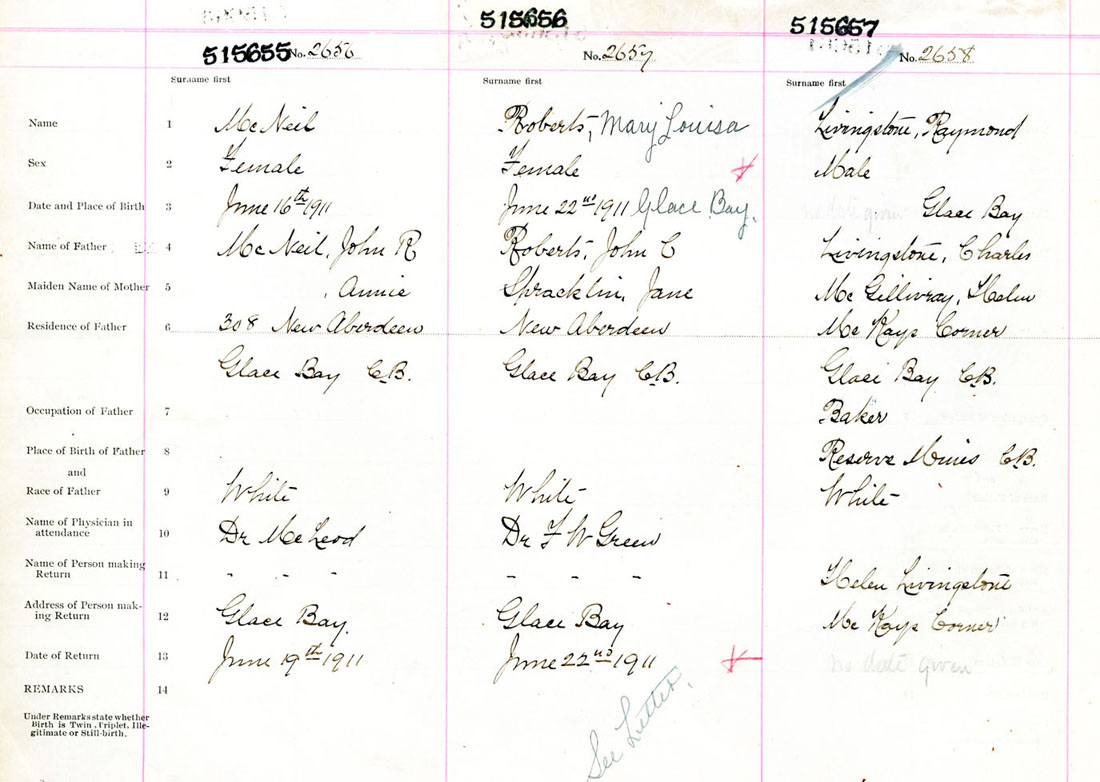 515655 No. 2656
515656
No. 2657
515657
No. 2658
Surname first Surname first Surname first
Name 1 McNeil Roberts, Mary Louisa Livingstone, Raymond
Sex 2 Female Female Male
Date and Place of Birth 3 June 16th 1911 June 22nd 1911 Glace Bay. no date given Glace Bay
Name of Father 4 McNeil, John R Roberts, John C Livingstone, Charles
Maiden Name of Mother 5 , Annie Spracklin, Jane McGillivray, Helen
Residence of Father 6 308 New Aberdeen New Aberdeen McKays Corner
Glace Bay C.B. Glace Bay C.B. Glace Bay C.B.
Occupation of Father 7 Baker
Place of Birth of Father 8 Reserve Mines C.B.
and
Race of Father 9 White White White
Name of Physician in
attendance 10 Dr McLeod Dr F W Green
Name of Person making
Return 11 " " " " " " Helen Livingstone
Address of Person mak-
ing Return 12 Glace Bay. Glace Bay McKays Corner
Date of Return 13 June 19th 1911 June 22nd 1911 no date given
REMARKS 14
See Letter.
Under Remarks state whether
Birth is Twin, Triplet, Ille-
gitimate or Still-birth.